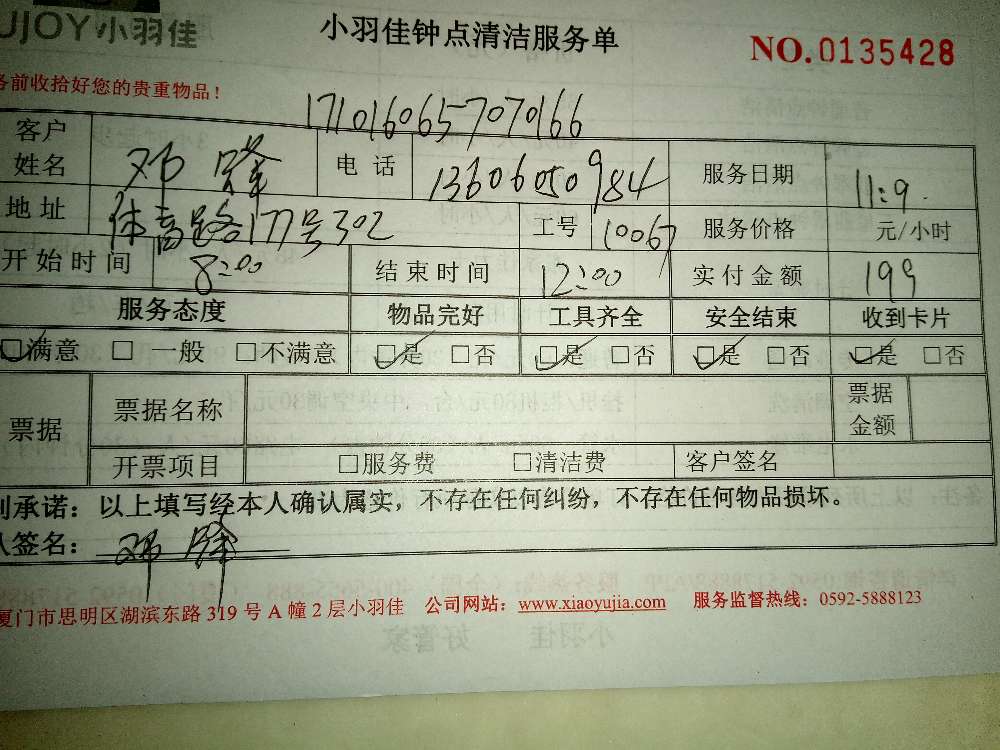 UJOY小羽佳
小羽佳钟点清洁服务单
NO.0135428
务前收拾好您的贵重物品！
1710160657070166
客户姓名 邓锋 电话 13606050984 服务日期 11:9.
地址 体育路177号302 工号 10067 服务价格 元/小时
开始时间 8:00 结束时间 12:00 实付金额 199
服务态度 物品完好 工具齐全 安全结束 收到卡片
☑满意 □一般 □不满意 ☑是 □否 ☑是 □否 ☑是 □否 ☑是 □否
票据 票据名称 票据金额
开票项目 □服务费 □清洁费 客户签名
别承诺：以上填写经本人确认属实，不存在任何纠纷，不存在任何物品损坏。
人签名：邓锋
厦门市思明区湖滨东路319号A幢2层小羽佳 公司网站：www.xiaoyujia.com 服务监督热线：0592-5888123